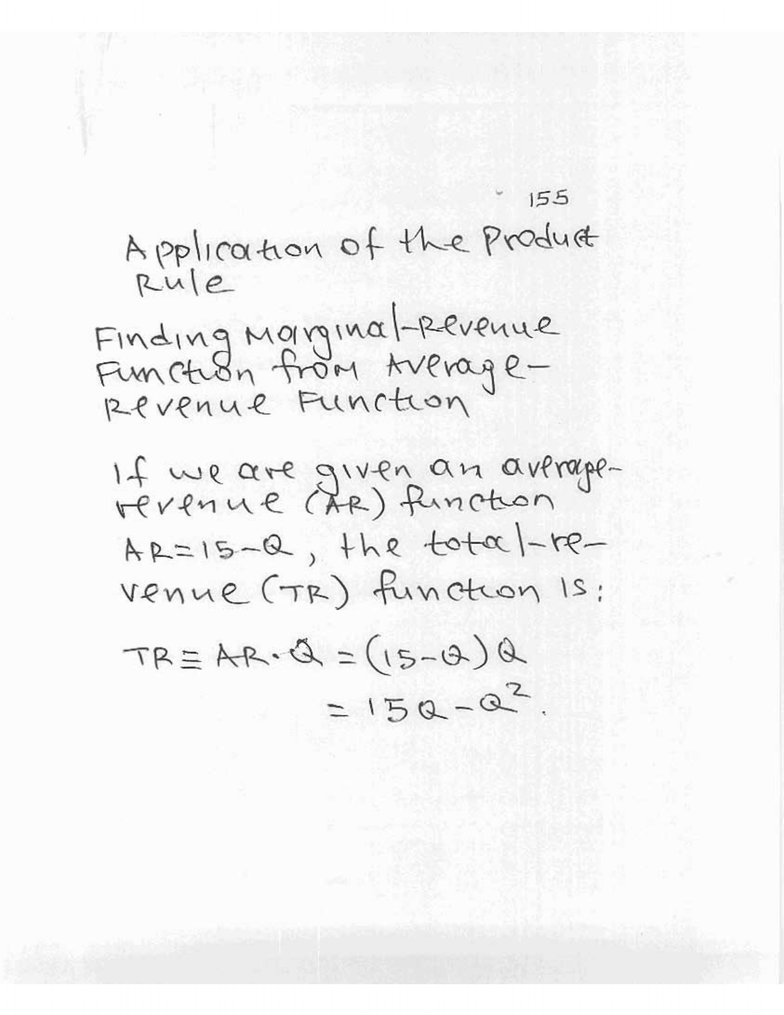 155
Application of the Product
Rule
Finding Marginal-Revenue
Function from Average-
Revenue Function
If we are given an average-
revenue (AR) function
AR=15-Q, the total-re-
venue (TR) function is:
TR≡ AR·Q = (15-Q)Q
= 15Q-Q².